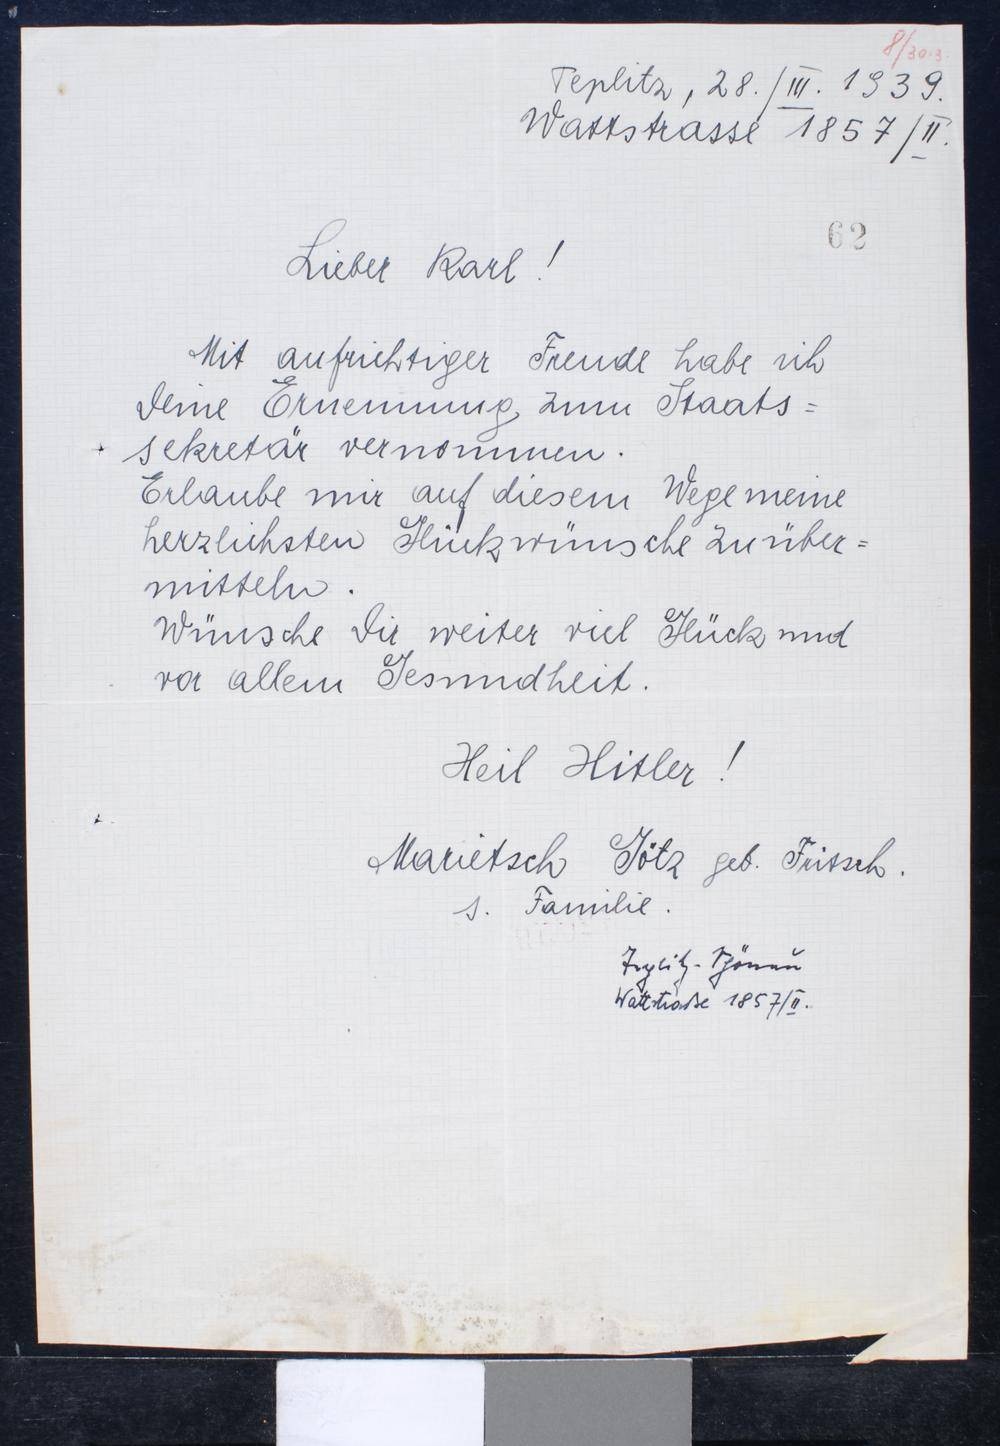 8/30.3.
Teplitz, 28./III. 1939.
Wattstrasse 1857/II.
62
Lieber Karl!
Mit aufrichtiger Freude habe ich
Deine Ernennung zum Staats=
sekretär vernommen.
Erlaube mir auf diesem Wege meine
herzlichsten Glückwünsche zu über=
mitteln.
Wünsche Dir weiter viel Glück und
vor allem Gesundheit.
Heil Hitler!
Marietsch Götz geb. Fritsch.
s. Familie.
Teplitz-Schönau
Wattstraße 1857/II.